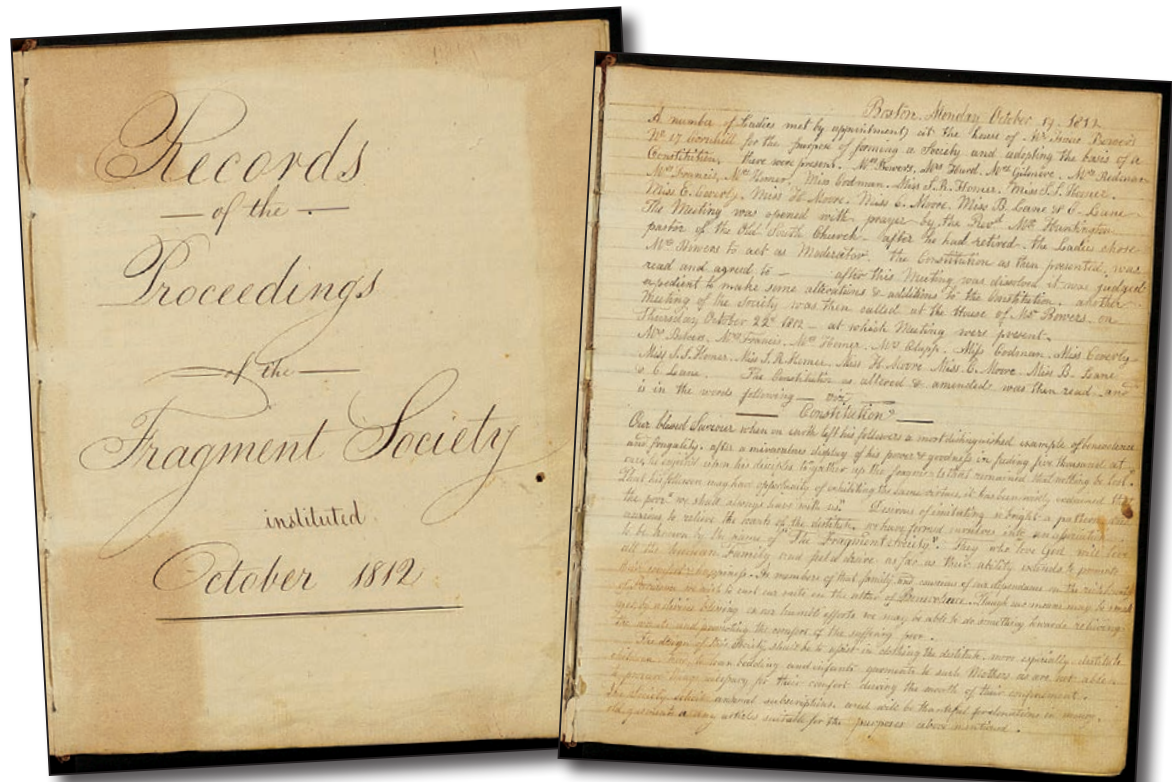 Records
of the
Proceedings
of the
Fragment Society
instituted
October 1812
Boston Monday October 19. 1812
A number of Ladies met by appointment at the house of Mrs Bowers
No 17 Cornhill for the purpose of forming a Society and adopting the basis of a
Constitution, there were present. Mrs Bowers, Mrs Hurd, Mrs
Mrs Francis, Mrs Homer, Miss Codman, Miss S. R. Homer, Miss Homer
Miss E. Coverly. Miss H. Moore. Miss E. Moore. Miss B. Lane & C. Lane
The Meeting was opened with prayer by the Revd Mr. Huntington
pastor of the Old South Church – after he had retired. the Ladies chose
Mrs Bowers to act as Moderator. the Constitution as then presented, was
read and agreed to – after this Meeting was dissolved it was judged
expedient to make some alterations & additions to the Constitution. another
Meeting of the Society was then called at the House of Mrs Bowers on
Thursday October 22d 1812 – at which Meeting were present.
Mrs Bowers, Mrs Francis, Mrs Homer, Mrs Clapp. Miss Codman, Miss Coverly
Miss Homer. Miss S. R. Homer. Miss H. Moore Miss E. Moore. Miss B. Lane
& C. Lane. The Constitution as altered & amended was then read and
is in the words following – viz
Constitution
Our blessed Saviour when on earth left his followers a most distinguished example of benevolence
and frugality. after a miraculous display of his power & goodness in feeding five thousand at
once, he enjoined upon his disciples to gather up the fragments that remained that nothing be lost."
That his followers may have opportunity of exhibiting the same virtues, it has been wisely ordained that
the poor "we shall always have with us". Desirous of imitating so bright a pattern and
anxious to relieve the wants of the destitute, we have formed ourselves into an association
to be known by the name of "The Fragment Society". They who love God will love
all the human Family and feel a desire as far as their ability extends to promote
happiness. As members of that family and conscious of our dependance on the
of we wish to cast our mite on the altar of Benevolence. Though our means may be small
yet by a divine blessing on our humble efforts we may be able to do something towards relieving
the wants and promoting the comfort of the suffering poor.
The design of this Society shall be to assist in clothing the destitute, more especially destitute
children. bedding and infants garments to such Mothers as are not able
to procure things necessary for their comfort during the month of their confinement.
The Society annual subscriptions. and will be thankful for donations in money.
old garments or any articles suitable for the purposes above mentioned.